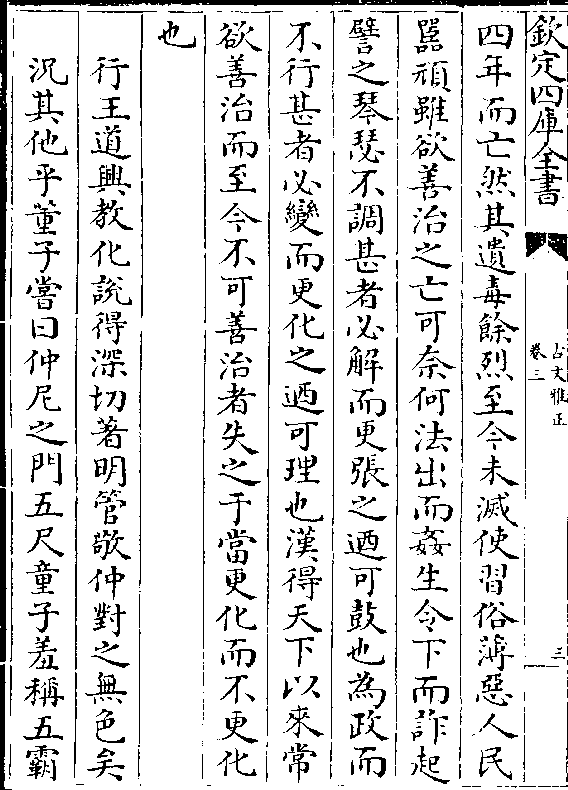 欽定四庫全書
古文雅正
卷三
三
四年而亡然其遺毒餘烈至今未滅使習俗薄惡人民
嚚頑雖欲善治之亡可奈何法出而姦生令下而詐起
譬之琴瑟不調甚者必解而更張之迺可鼓也為政而
不行甚者必變而更化之迺可理也漢得天下以來常
欲善治而至今不可善治者失之于當更化而不更化
也
行王道興教化說得深切著明管敬仲對之無色矣
況其他乎董子嘗曰仲尼之門五尺童子羞稱五霸